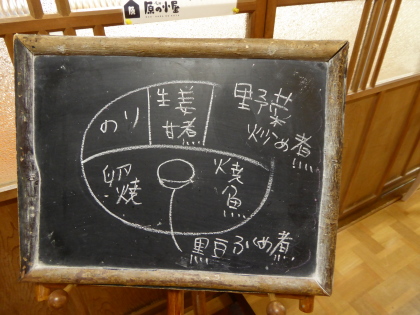 原の小屋
のり
生姜
甘煮
野菜
炒め煮
卵焼
焼魚
黒豆ふくめ煮